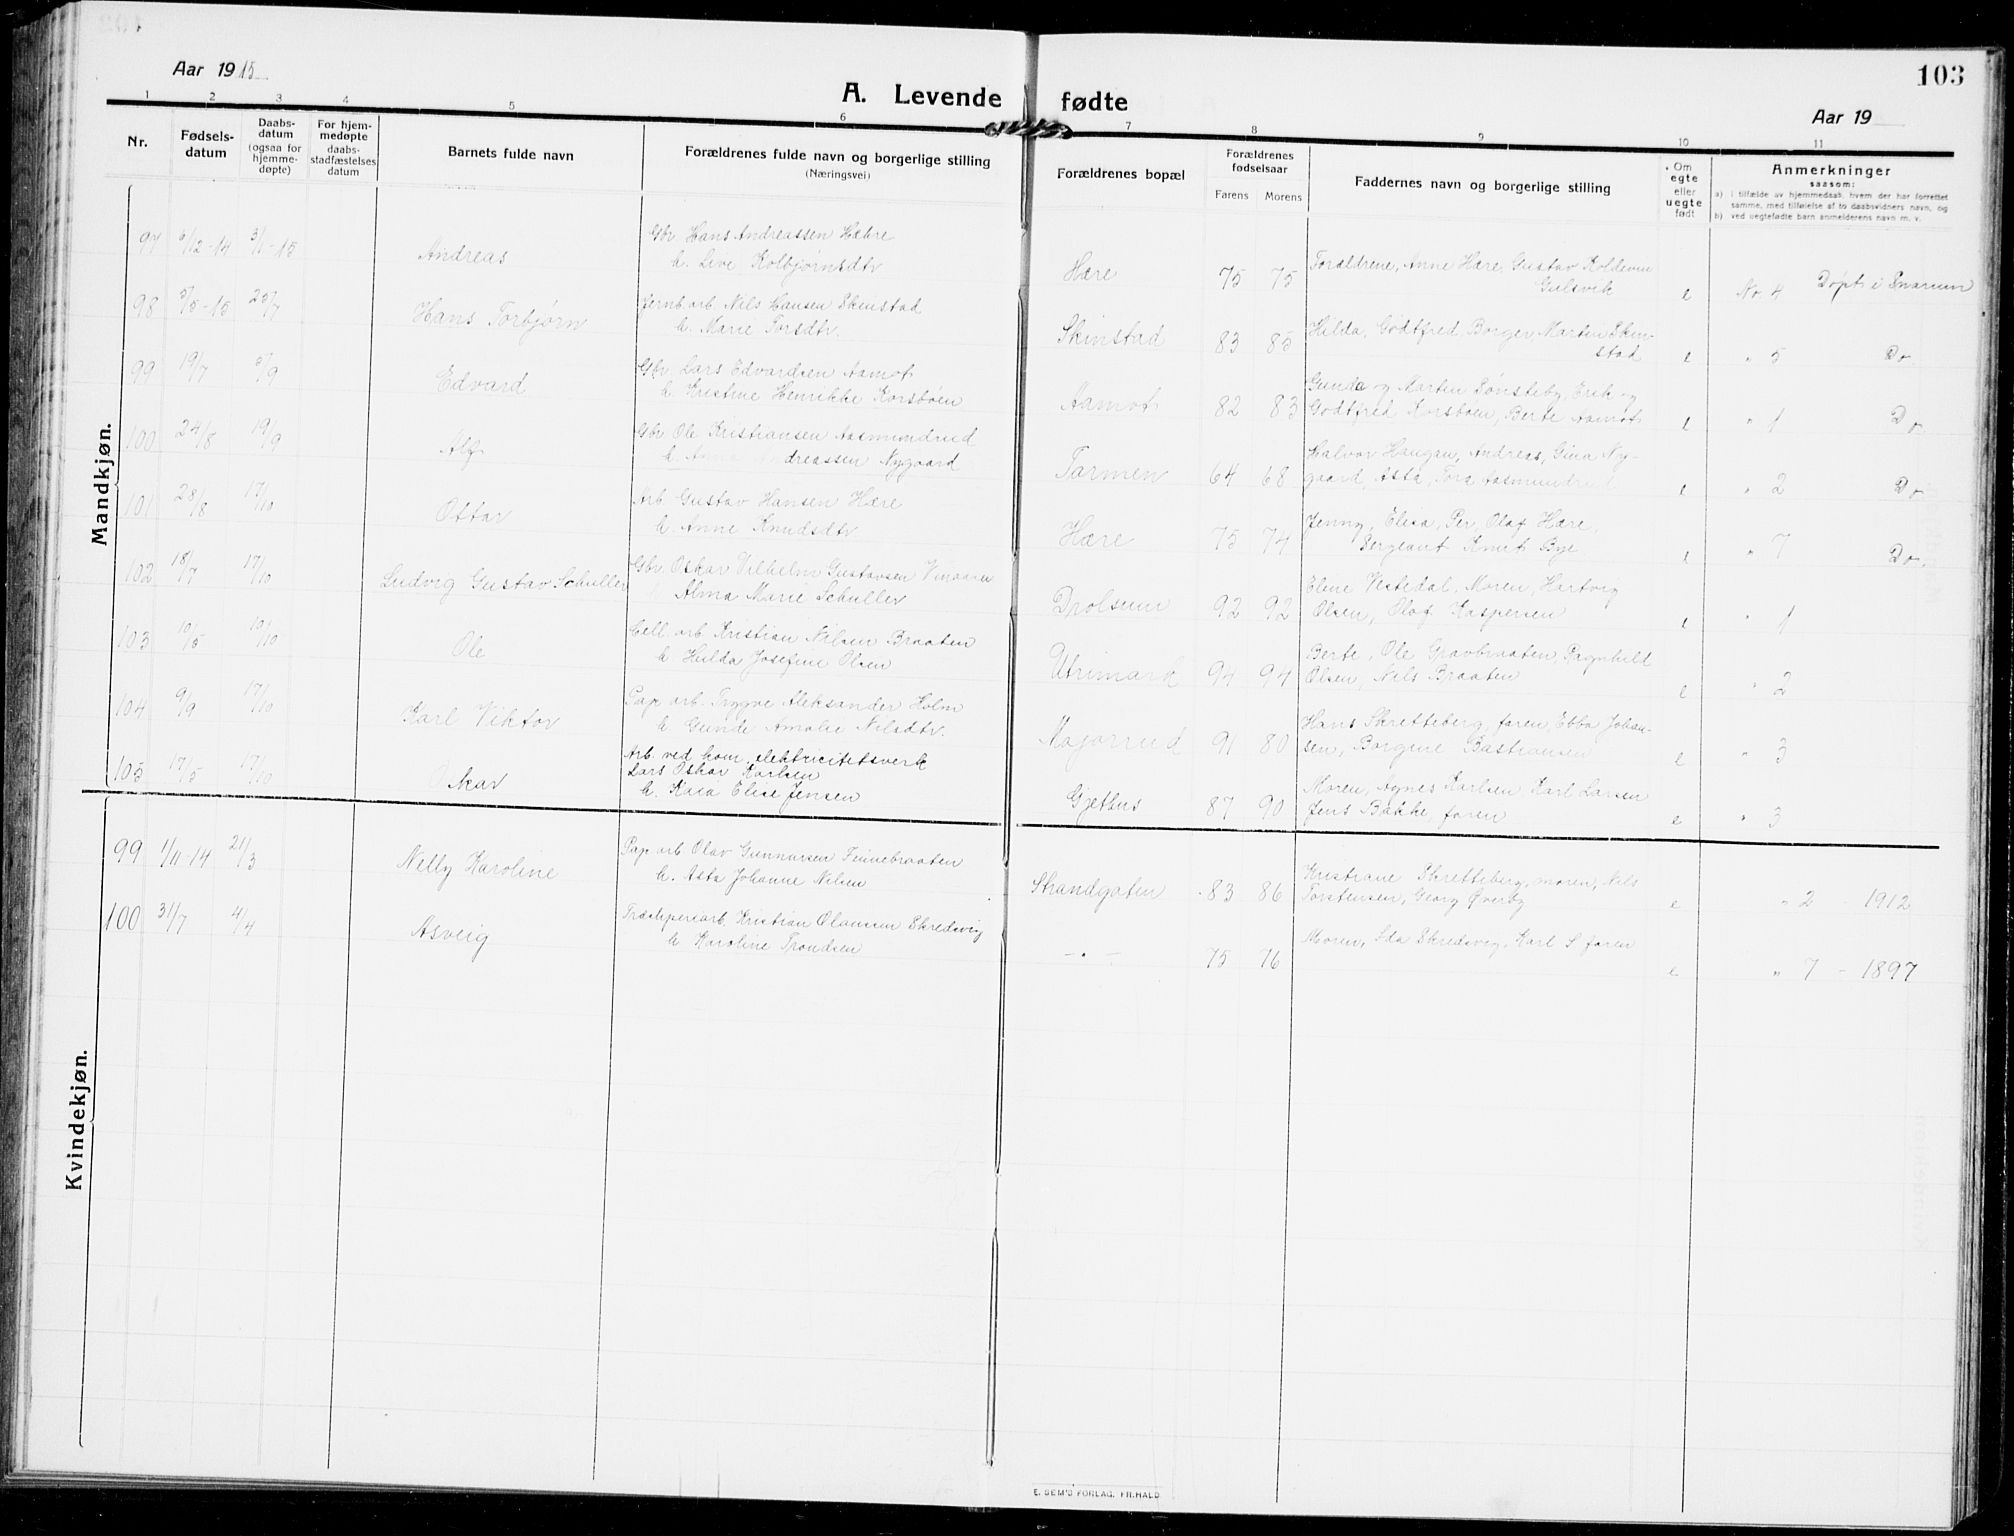 103
Aar 1915
Aar 19
A. Levende fødte
1 2 3 4 5 6 7 8 9 10 11
Nr.
Fødsels-
datum
Daabs-
datum
(ogsaa for
hjemme-
døpte)
For hjem-
medøpte
daabs-
stadfæstelses
datum
Barnets fulde navn
Forældrenes fulde navn og borgerlige stilling
(Næringsvei)
Forældrenes bopæl
Forældrenes
fødselsaar
Farens Morens
Faddernes navn og borgerlige stilling
Om
egte
eller
uegte
født
Anmerkninger
saasom:
a) i tilfælde av hjemmedaab, hvem der har forrettet
samme, med tilføielse af to daabsvidners navn, og
b) ved uegtefødte barn anmelderens navn m. v.
Mandkjøn.
97 6/12-14 3/1-15 Andreas
Gbr Hans Andreassen Hæhre
h. Live Kolbjørnsdtr
Hære 75 75
Forældrene, Anne Hære, Gustav Koldevin
Gulsvik
e No 4 Døpt i Snarum
98 5/5-15 25/7 Hans Torbjørn
Jernb. arb Nils Hansen Skinstad
h. Marie Torsdtr.
Skinstad 83 85
Hilda, Godtfred, Borger, Martin Skin-
stad
e " 5 Do
99 19/7 5/9 Edvard
Gbr Lars Edvardsen Aamot
h. Kristine Henrikke Korsbøen
Aamot 82 83
Gunda og Martin Sønsteby, Erik og
Godtfred Korsbøen, Berte Aamot
e " 1 Do
100 24/8 19/9 Alf
Gbr Ole Kristiansen Aasmundrud
h. Anne Andreassen Nygaard
Tormen 64 68
Halvor Haugan, Andreas, Gina Ny-
gaard, Asta, Tora Aasmundrud
e " 2 Do
101 28/8 17/10 Ottar
Arb Gustav Hansen Hære
h. Anne Knudsdtr
Hære 75 74
Jenny, Elisa, Per, Olaf Hære,
Sergeant Knut Bye
e " 7 Do.
102 18/7 17/10 Ludvig Gustav Schuller
Gbr. Oskar Vilhelm Gustavsen
Alma Marie Schuller
Drolsum 92 92
Elene Vestedal, Moren, Hartvig
Olsen, Olaf Kaspersen
e " 1
103 10/5 10/10 Ole
Cell. arb Kristian Nilsen Braaten
h Hilda Josefine Olsen
Utrimard 94 94
Berte, Ole Gravbraaten, Ragnhild
Olsen, Nils Braaten
e " 2
104 9/9 17/10 Karl Viktor
Pap arb. Trygve Aleksander Holm
h Gunde Amalie Nilsdtr.
Majorrud 91 80
Hans Skretteberg, faren, Ebba Johan-
sen, Borgine Bastiansen
e " 3
105 17/5 17/10 Oskar
Arb. ved kom. elektricitetsverk
Lars Oskar Karlsen
h. Kaia Elise Jensen
Gjethus 87 90
Moren, Agnes Karlsen Karl Larsen
Jens Bakke, faren
e " 3
Kvindekjøn.
99 1/11-14 21/3 Nelly Karoline
Pap. arb Olav Gunnarsen Finnebraaten
h. Asta Johanne Nilsen
Strandgaten 83 86
Kristiane Skretteberg, moren, Nils
Torstensen, Georg Øverby
e " 2 - 1912
100 31/7 4/4 Asveig
Træsliperiarb. Kristian Olausen Skredsvig
h Karoline Trondsen
- " - 75 76
Moren, Ida Skredsvig, Karl S faren
e " 7 - 1897
E. SEM'S FORLAG. FR.HALD